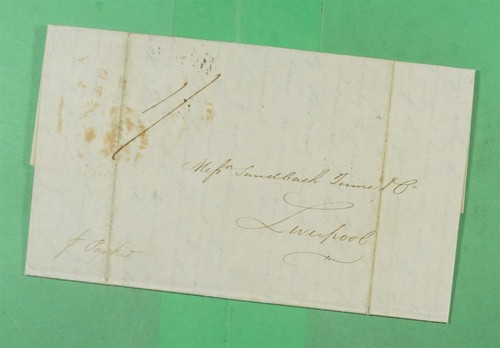 Messrs Sandbach Tinne & Co.
Liverpool
p Packet